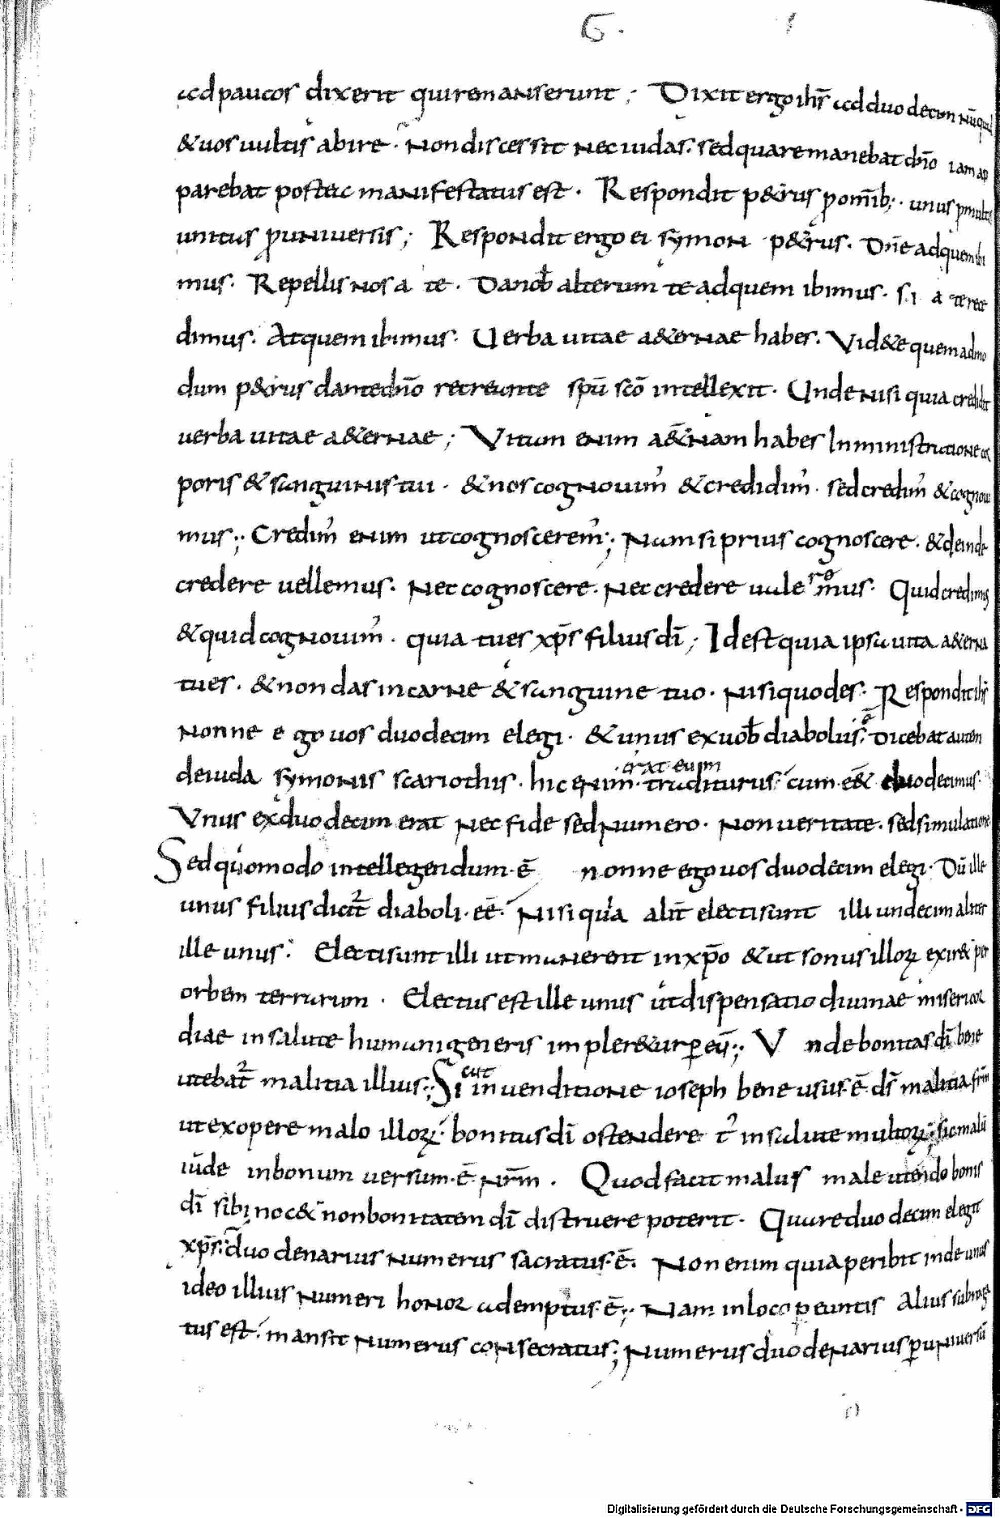 G. 1
ad paucos dixerit qui remanserunt; Dixit ergo ihs̄ ad duodecim nūquid
& uos uultis abire. Non discessit nec iudas. sed quare manebat dn̄o iam ap
parebat postea manifestatus est. Respondit p&rus p omīb;. unus p multis
unitus p uniuersis; Respondit ergo ei symon p&rus. Dn̄e ad quem ibi
mus. Repellis nos a te. Da nob̄ alterum te ad quem ibimus. si a te rece
dimus. At quem ibimus. Uerba uitae a&ernae habes. Vid&e quem admo
dum p&rus dante dn̄o recreante sp̄u sc̄o intellexit. Unde nisi quia credidit
uerba uitae a&ernae; Vitam enim a&̄nam habes In ministratione cor
poris & sanguinis tui. & nos cognouim' & credidim'. sed credim' & cognoui
mus;. Credim' enim ut cognoscerem'; Nam si prius cognoscere. & deinde
credere uellemus. Nec cognoscere. Nec credere uale remus. Quid credimus
& quid cognouim'. quia tu es xp̄s filius dī; Id est quia ipsa uita a&erna
tu es. & non das in carne & sanguine tuo. Nisi quod es. Respondit ihs̄
Nonne ego uos duodecim elegi. & unus ex uob̄ diabolus ē. Dicebat autem
de iuda symonis scariothis. hic enim erat eum traditurus. cum eē& duodecimus.
Unus ex duodecim erat Nec fide sed Numero. Non ueritate. sed simulatione
Sed quomodo intellegendum ē nonne ego uos duodecim elegi. Dū ille
unus filius dicit² diaboli. eē. Nisi quia alit̄ electi sunt illi undecim aliter
ille unus. Electi sunt illi ut manerent in xp̄o & ut sonus illoꝝ exir& per
orbem terrarum. Electus est ille unus ut dispensatio diuinae misericor
diae in salute humani generis impler&ur p eū;. Unde bonitas dī bene
utebat² malitia illius;. Sicut in uenditione ioseph bene usus. ē ds̄ malitia frm̄
ut ex opere malo illoꝝ bonitas dī ostendere t' in salute multoꝝ; sic malū
iūde in bonum uersum. ē nrm̄. Quod facit malus male utendo bonis
dī sibi noc& non bonitatem dī distruere poterit. Quare duodecim elegit
xp̄s. duodenarius numerus sacratus. ē. Non enim quia peribit inde unus
ideo illius numeri honor ademptus. ē;. Nam in loco pereuntis Alius subroga
tus est. mansit Numerus consecratus; Numerus duodenarius p uniuersū
Digitalisierung gefördert durch die Deutsche Forschungsgemeinschaft - DFG